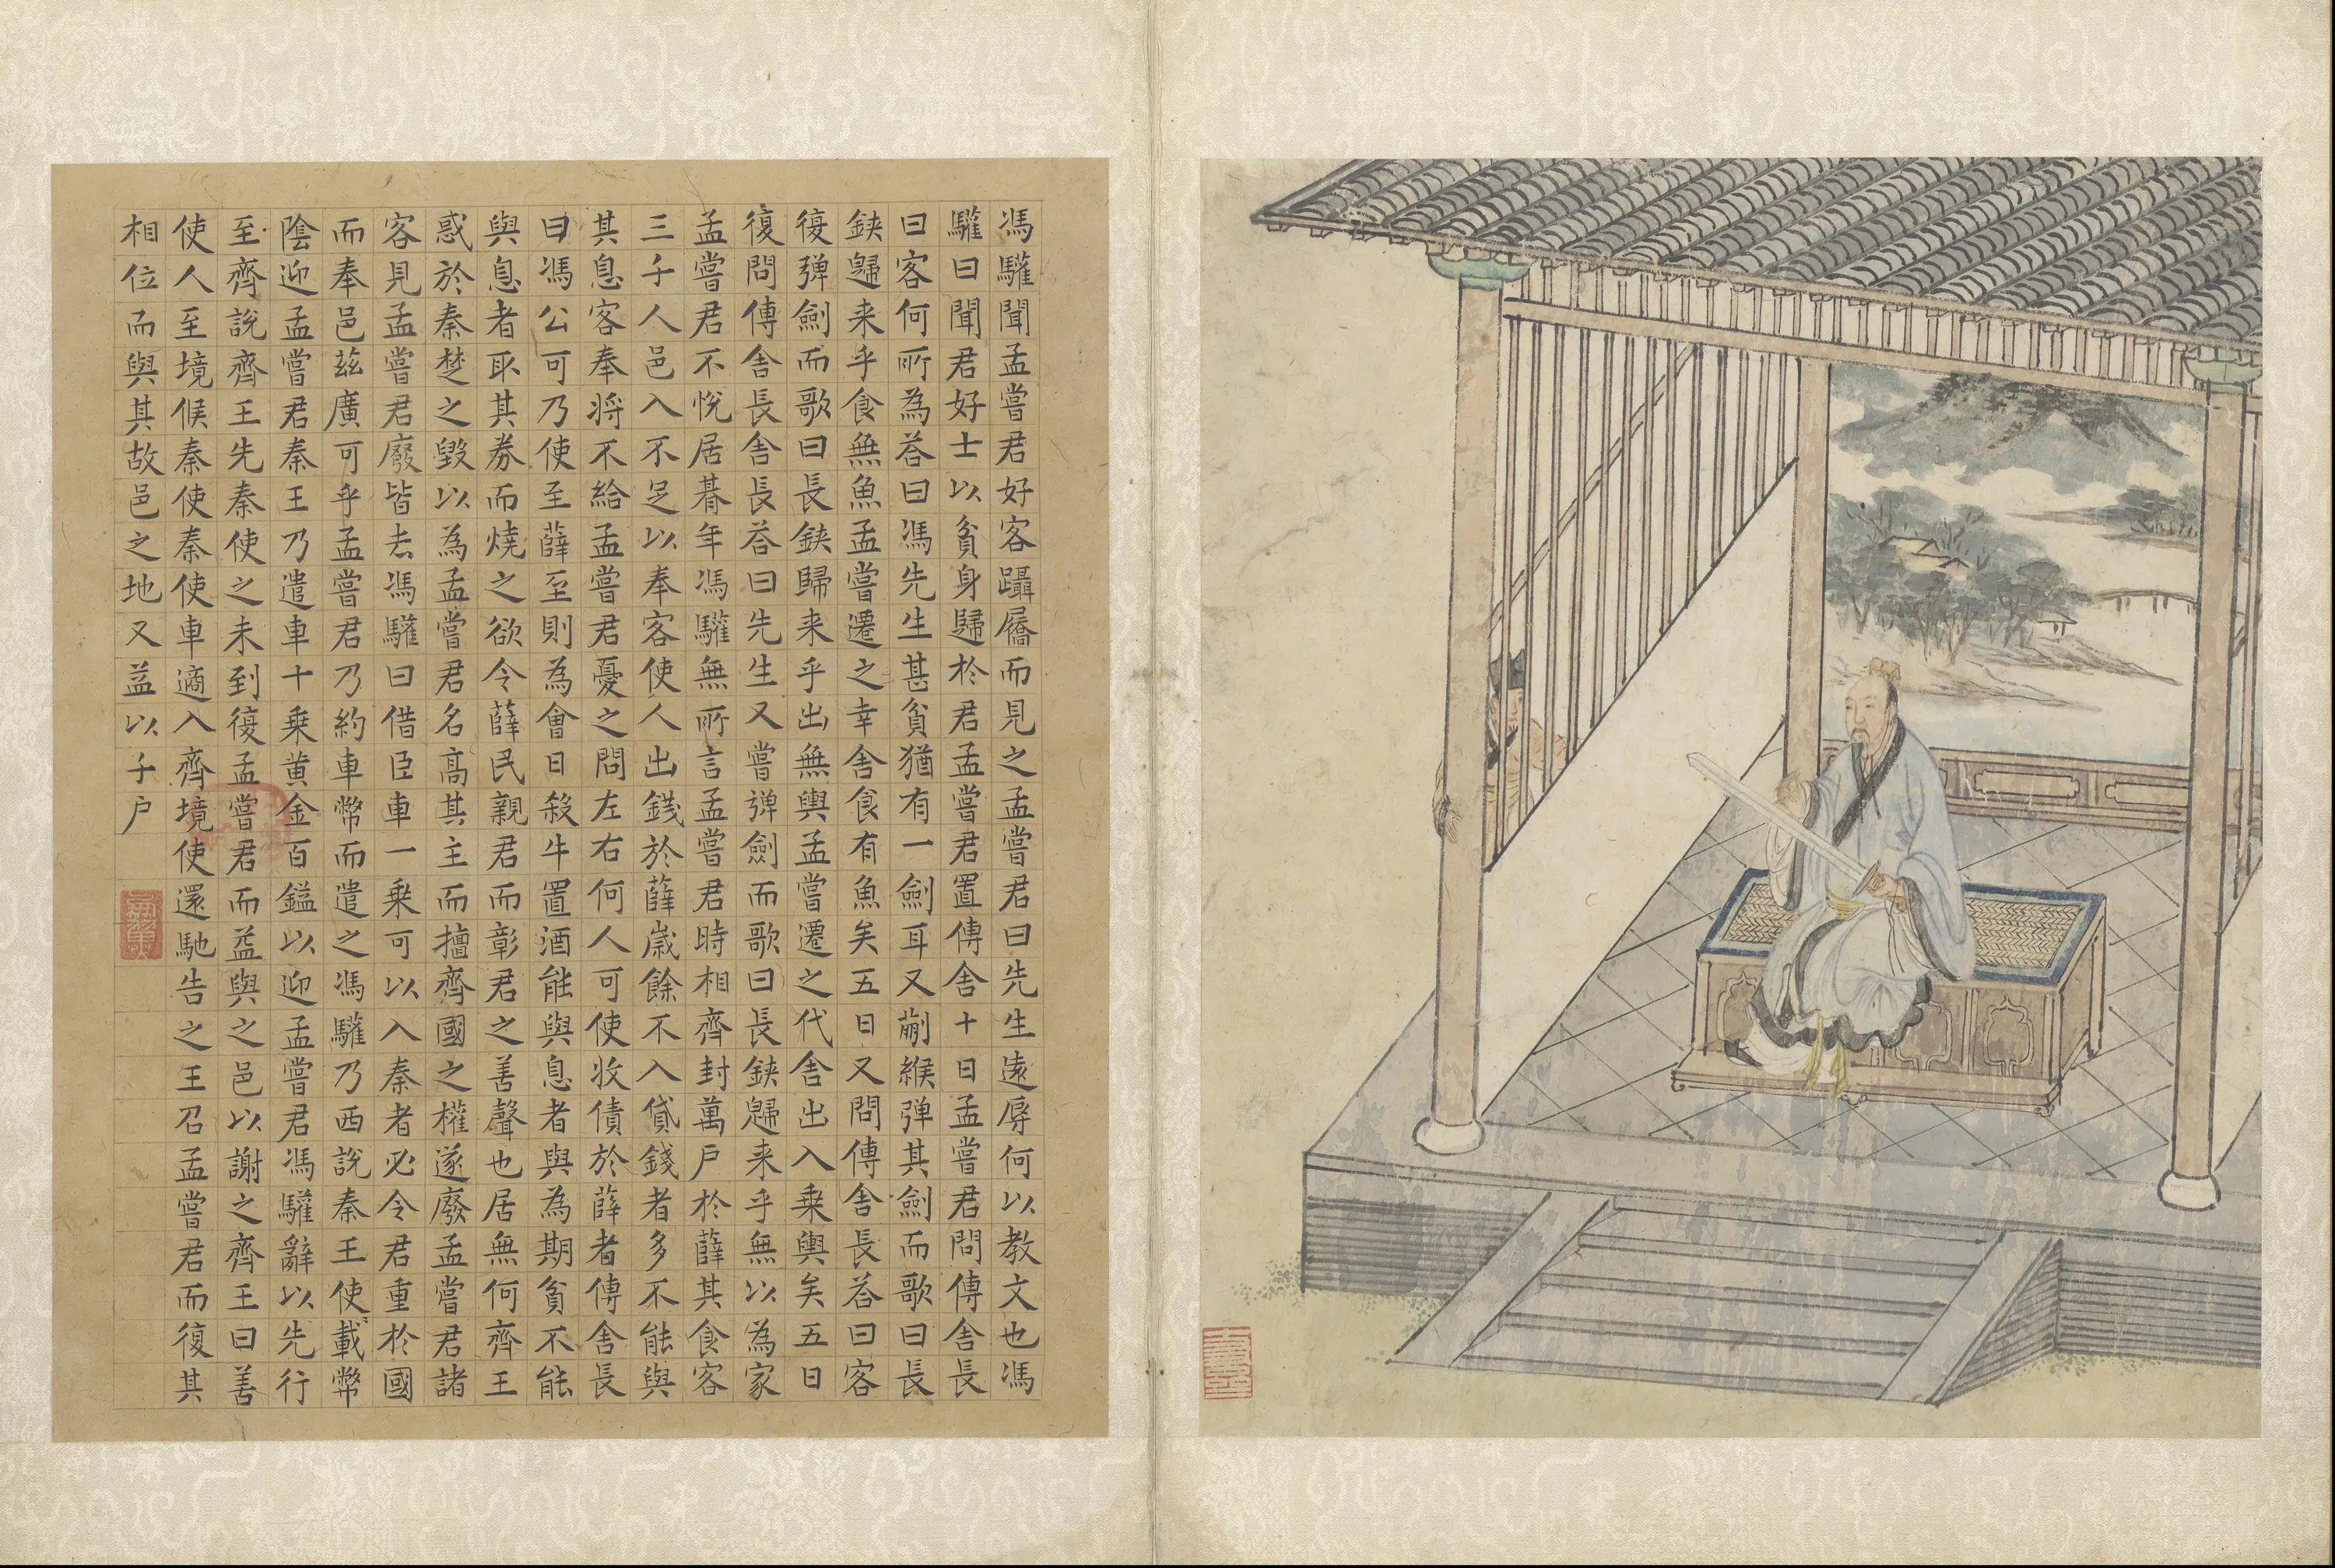 馮驩聞孟嘗君好客躡屩而見之孟嘗君曰先生遠辱何以教文也馮
驩曰聞君好士以貧身歸於君孟嘗君置傳舍十日孟嘗君問傳舍長
曰客何所為荅曰馮先生甚貧猶有一劍耳又蒯緱弹其劍而歌曰長
鋏歸来乎食無魚孟嘗遷之幸舍食有魚矣五日又問傳舍長荅曰客
復弹劍而歌曰長鋏歸来乎出無輿孟嘗遷之代舍出入乗輿矣五日
復問傳舍長舍長荅曰先生又嘗弹劍而歌曰長鋏歸来乎無以為家
孟嘗君不悅居朞年馮驩無所言孟嘗君時相齊封萬户於薛其食客
三千人邑入不足以奉客使人出錢於薛歲餘不入貸錢者多不能與
其息客奉将不給孟嘗君憂之問左右何人可使收債於薛者傳舍長
曰馮公可乃使至薛至則為會日殺牛置酒能與息者與為期貧不能
與息者取其券而燒之欲令薛民親君而彰君之善聲也居無何齊王
惑於秦楚之毀以為孟嘗君名高其主而擅齊國之權遂廢孟嘗君諸
客見孟嘗君廢皆去馮驩曰借臣車一乗可以入秦者必令君重於國
而奉邑茲廣可乎孟嘗君乃約車幣而遣之馮驩乃西說秦王使載幣
陰迎孟嘗君秦王乃遣車十乗黄金百鎰以迎孟嘗君馮驩辭以先行
至齊說齊王先秦使之未到復孟嘗君而益與之邑以謝之齊王曰善
使人至境候秦使秦使車適入齊境使還馳告之王召孟嘗君而復其
相位而與其故邑之地又益以千户